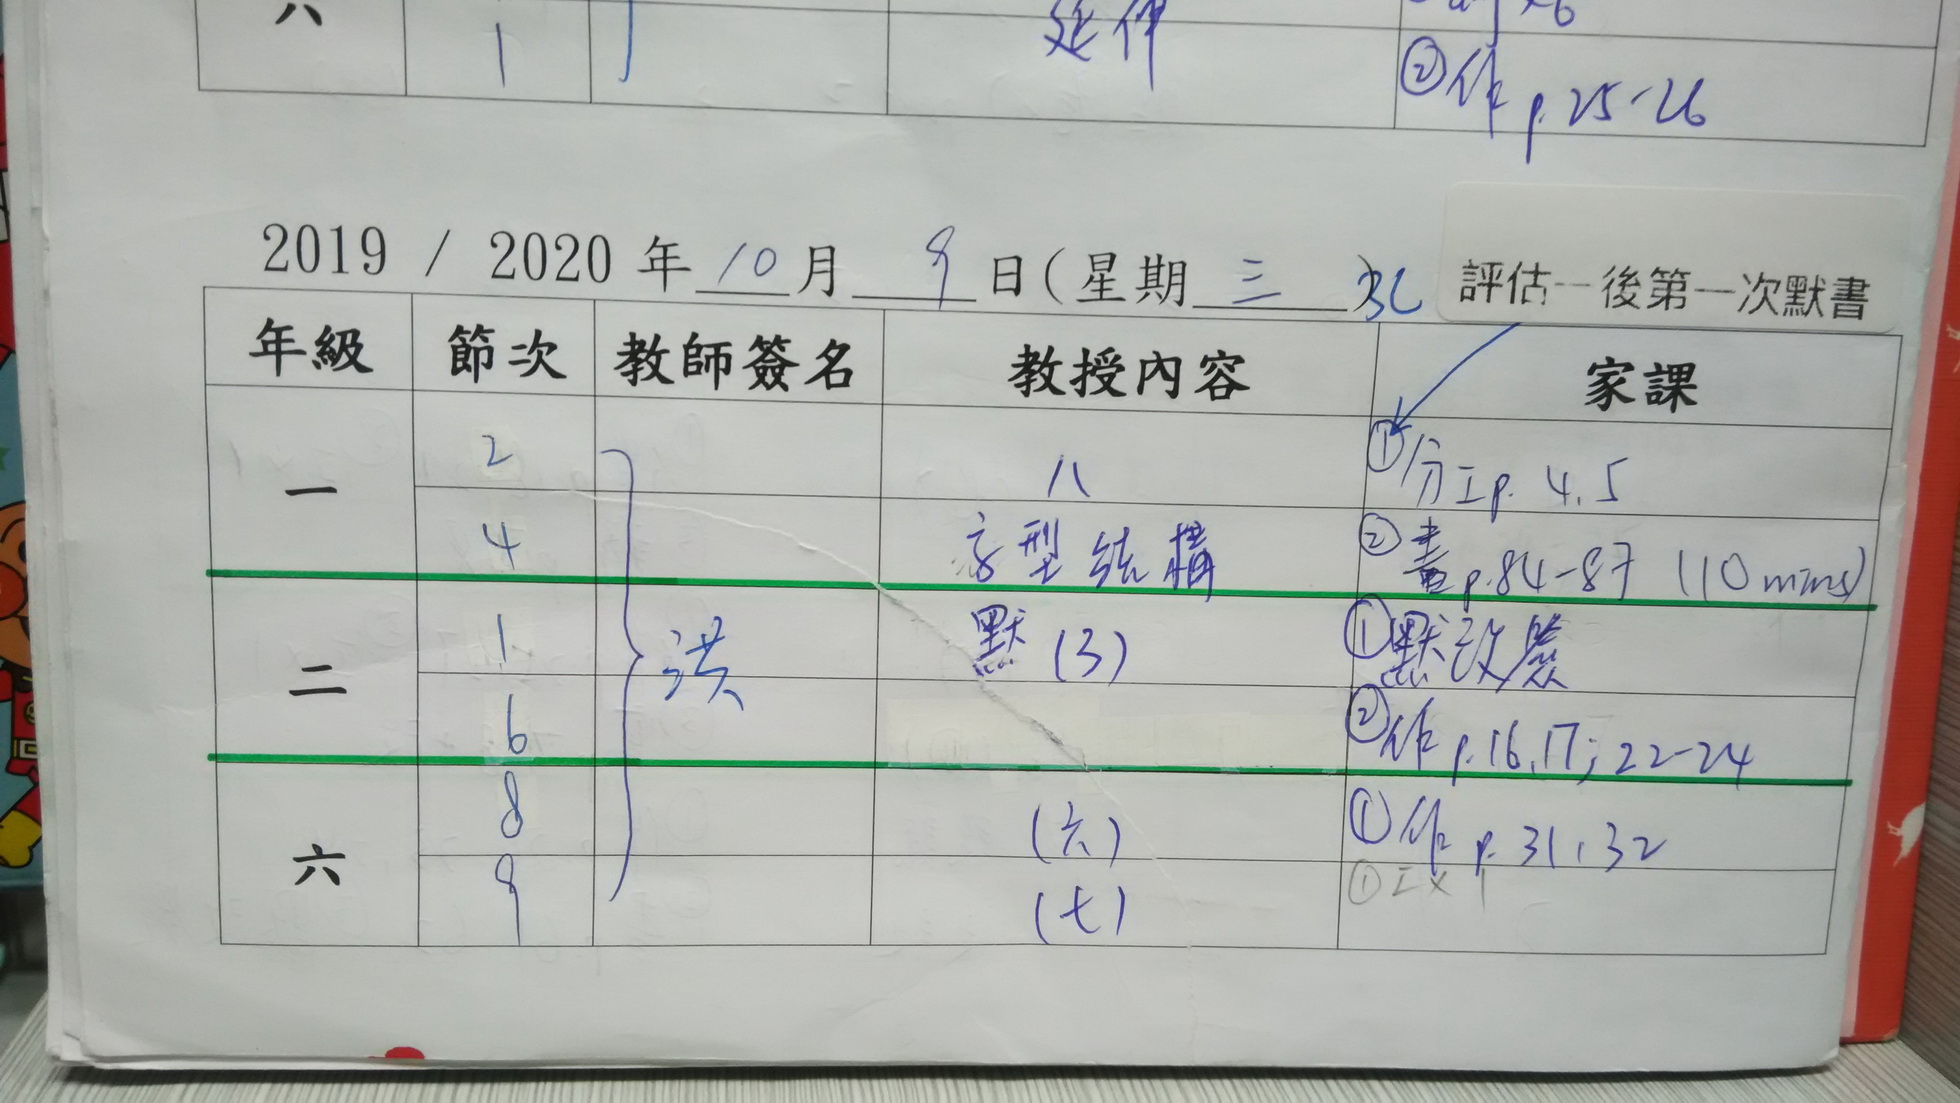 六 1 延伸
②作 p.25-26
2019 / 2020 年 10 月 9 日(星期 三 ) 3C
評估一後第一次默書
年級 節次 教師簽名 教授內容 家課
一 2 八 ①分工p. 4.5
4 字型結構 ②書p.84-87 (10 mins)
二 1 洪 默(3) ①默改簽
6 ②作 p.16,17; 22-24
六 8 (六) ①作 p. 31,32
9 (七) ①工x1